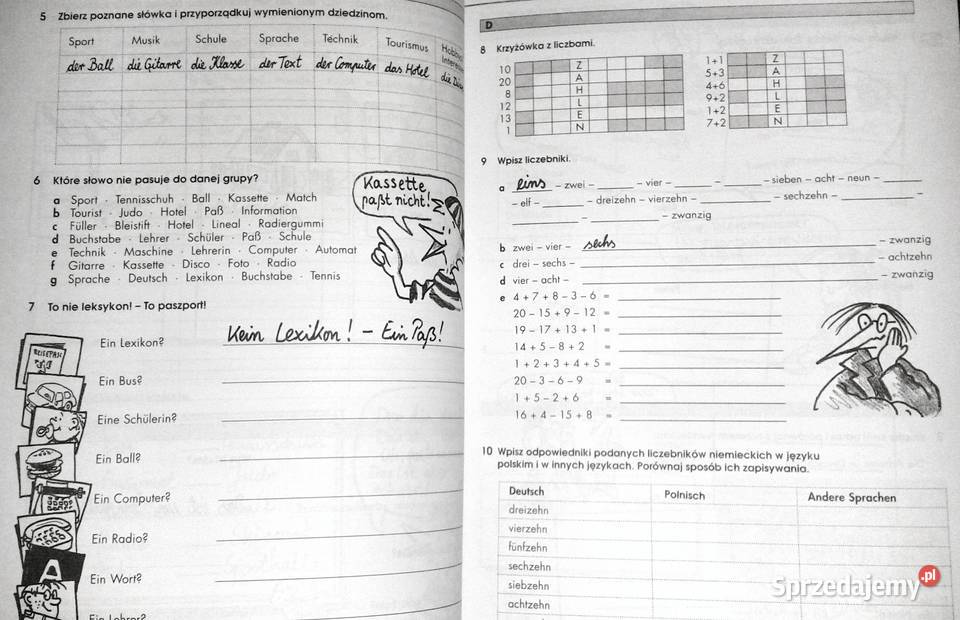 5 Zbierz poznane słówka i przyporządkuj wymienionym dziedzinom.
Sport Musik Schule Sprache Technik Tourismus
der Ball die Gitarre die Klasse der Text der Computer das Hotel die
6 Które słowo nie pasuje do danej grupy?
a Sport · Tennisschuh · Ball · Kassette · Match
b Tourist · Judo · Hotel · Paß · Information
c Füller · Bleistift · Hotel · Lineal · Radiergummi
d Buchstabe · Lehrer · Schüler · Paß · Schule
e Technik · Maschine · Lehrerin · Computer · Automat
f Gitarre · Kassette · Disco · Foto · Radio
g Sprache · Deutsch · Lexikon · Buchstabe · Tennis
Kassette
paßt nicht!
7 To nie leksykon! – To paszport!
REISEPASS
Ein Lexikon? Kein Lexikon! – Ein Paß!
Ein Bus?
Eine Schülerin?
Ein Ball?
Ein Computer?
Ein Radio?
Ein Wort?
A
Ein Lehrer?
D
8 Krzyżówka z liczbami.
10 Z
20 A
8 H
12 L
13 E
1 N
1+1 Z
5+3 A
4+6 H
9+2 L
1+2 E
7+2 N
9 Wpisz liczebniki.
a eins – zwei – ____ – vier – ____ – ____ – sieben – acht – neun – ____
– elf – ____ – dreizehn – vierzehn – ____ – sechzehn – ____
____ – ____ – zwanzig
b zwei – vier – sechs ____ – zwanzig
c drei – sechs – ____ – achtzehn
d vier – acht – ____ – zwanzig
e 4 + 7 + 8 – 3 – 6 = ____
20 – 15 + 9 – 12 = ____
19 – 17 + 13 + 1 = ____
14 + 5 – 8 + 2 = ____
1 + 2 + 3 + 4 + 5 = ____
20 – 3 – 6 – 9 = ____
1 + 5 – 2 + 6 = ____
16 + 4 – 15 + 8 = ____
10 Wpisz odpowiedniki podanych liczebników niemieckich w języku
polskim i w innych językach. Porównaj sposób ich zapisywania.
Deutsch Polnisch Andere Sprachen
dreizehn
vierzehn
fünfzehn
sechzehn
siebzehn
achtzehn
Sprzedajemy .pl